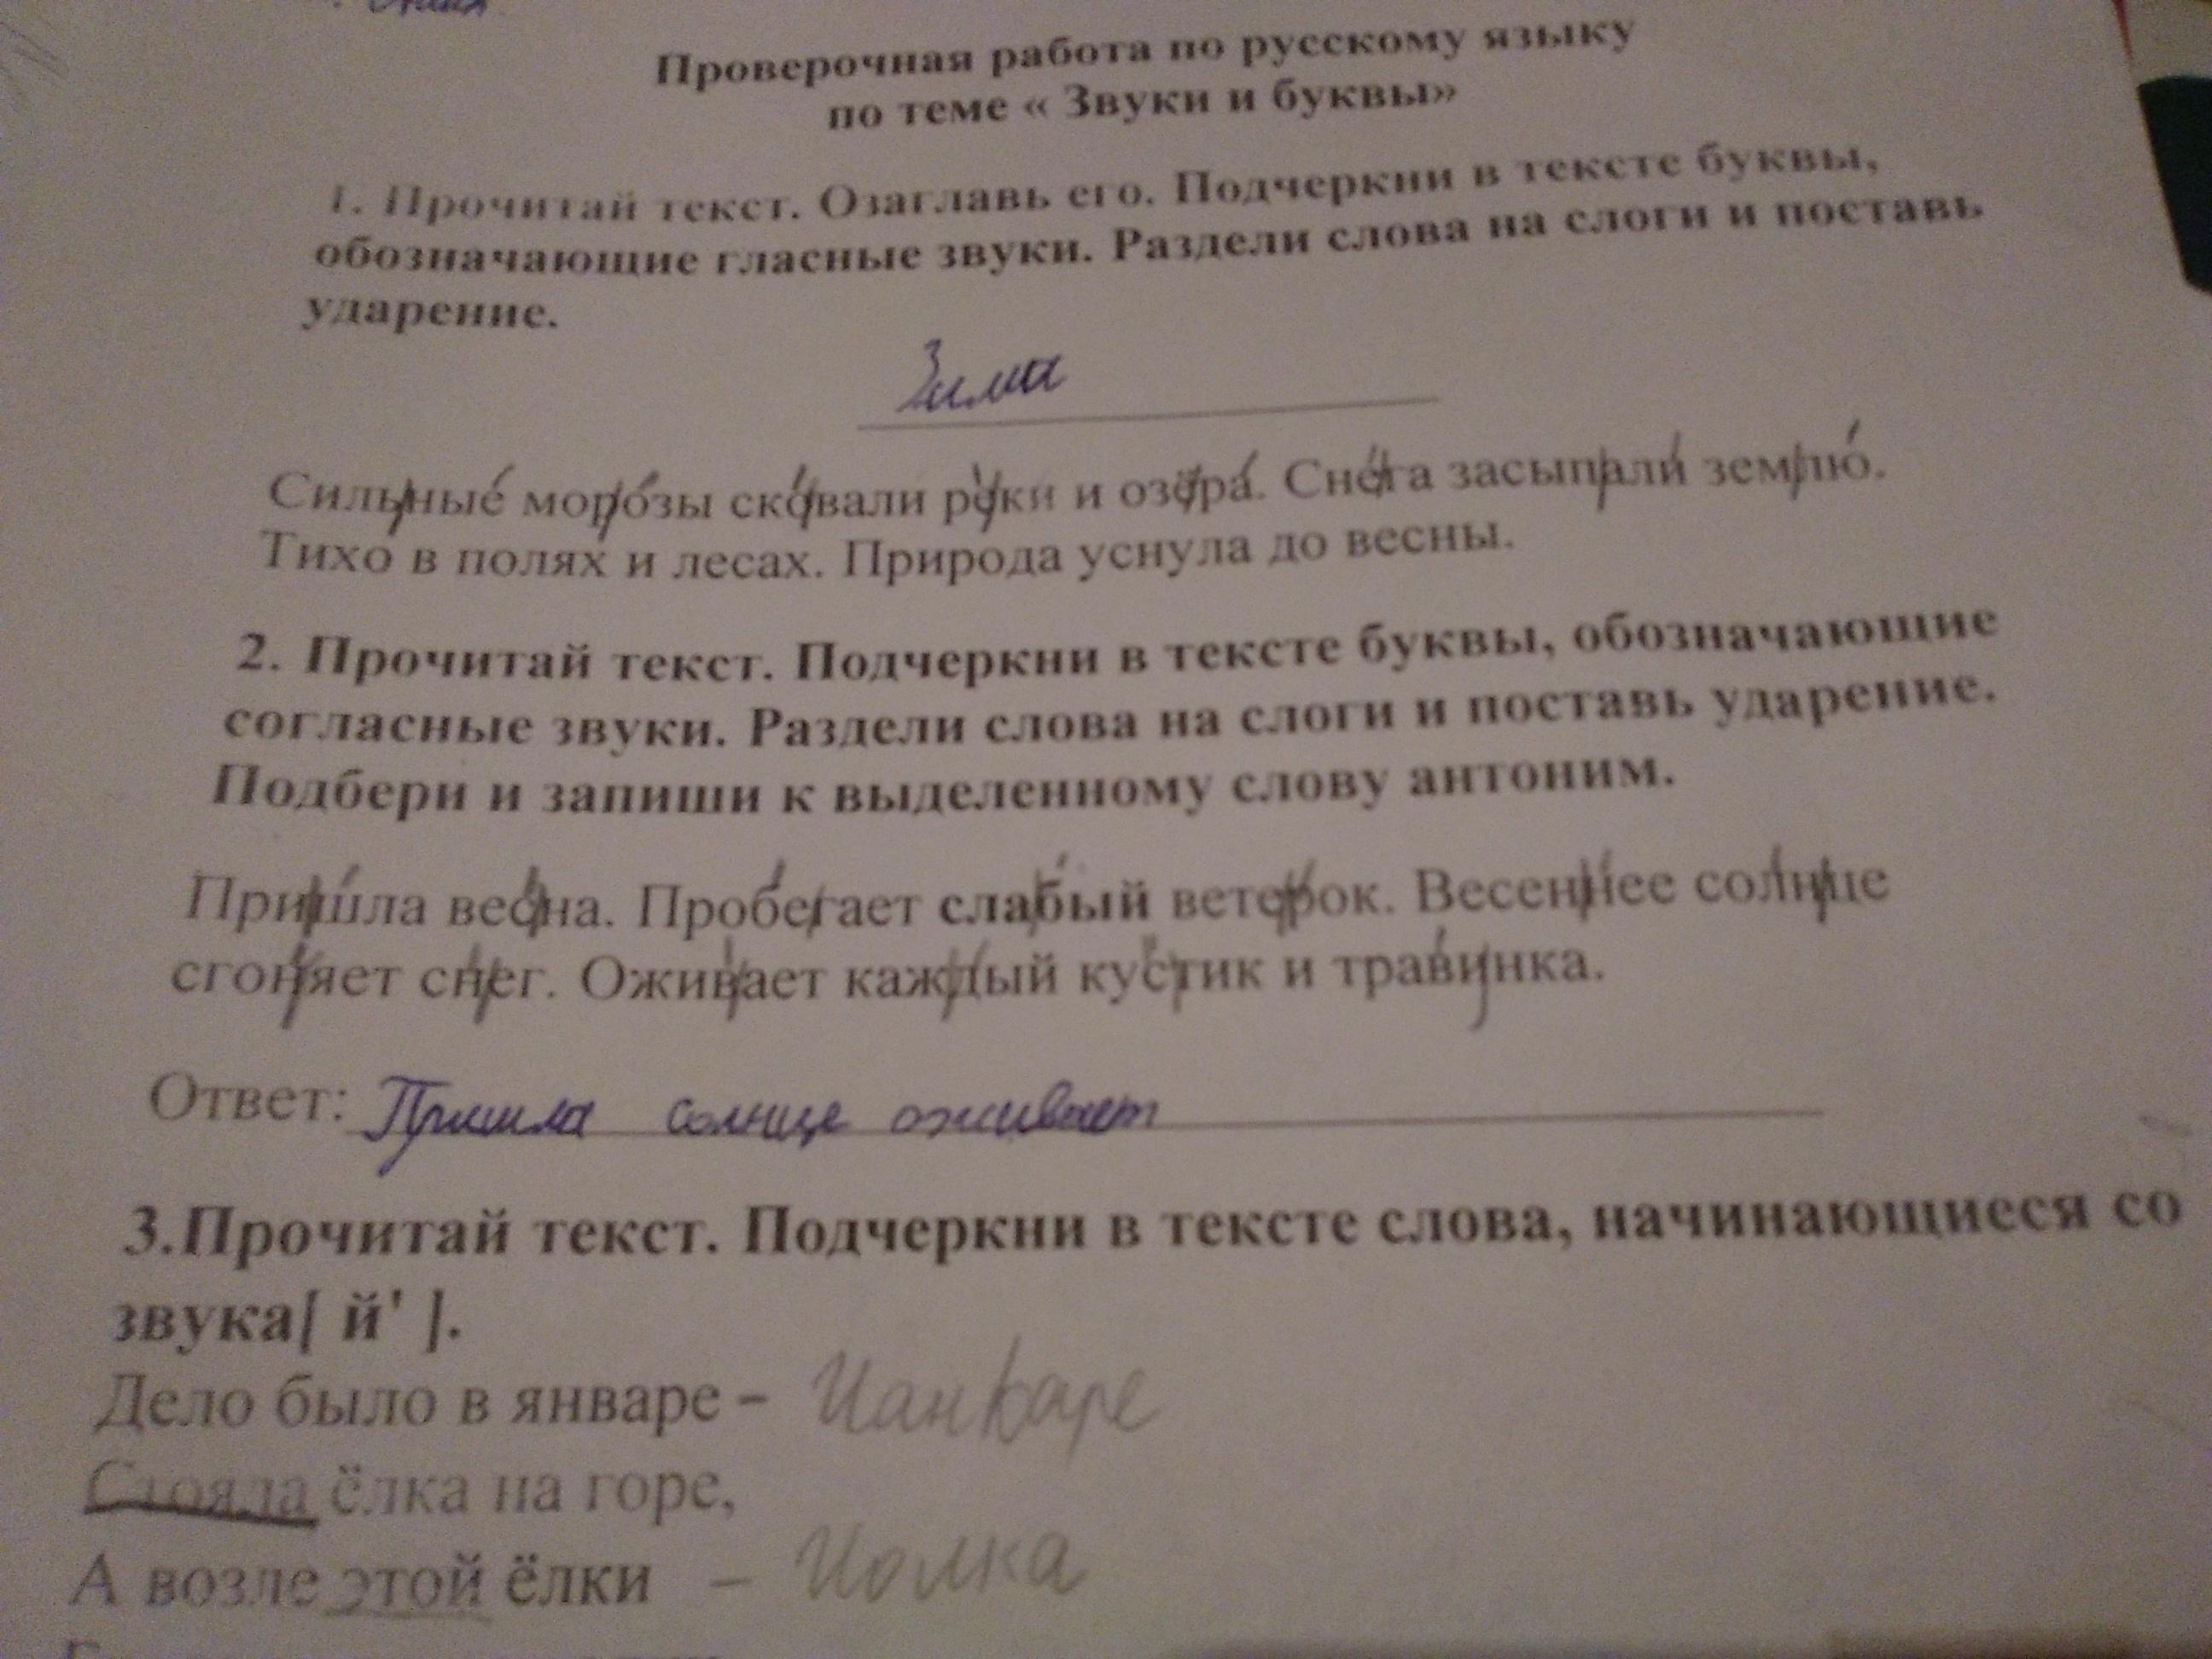 Проверочная работа по русскому языку
по теме « Звуки и буквы»
1. Прочитай текст. Озаглавь его. Подчеркни в тексте буквы,
обозначающие гласные звуки. Раздели слова на слоги и поставь
ударение.
Зима
Сильные морозы сковали реки и озёра. Снега засыпали землю.
Тихо в полях и лесах. Природа уснула до весны.
2. Прочитай текст. Подчеркни в тексте буквы, обозначающие
согласные звуки. Раздели слова на слоги и поставь ударение.
Подбери и запиши к выделенному слову антоним.
Пришла весна. Пробегает слабый ветерок. Весеннее солнце
сгоняет снег. Оживает каждый кустик и травинка.
Ответ: Пришла солнце оживает
3.Прочитай текст. Подчеркни в тексте слова, начинающиеся со
звука[ й' ].
Дело было в январе – Йанваре
Стояла ёлка на горе,
А возле этой ёлки – Йолка